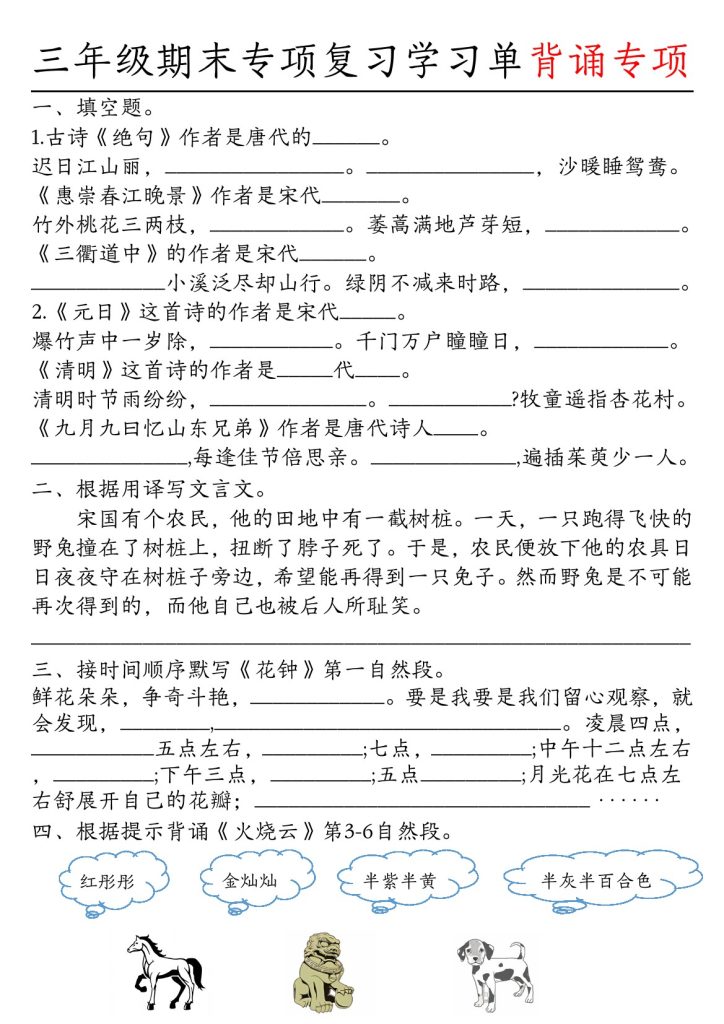 三年级期末专项复习学习单背诵专项
一、填空题。
1.古诗《绝句》作者是唐代的______。
迟日江山丽，________________。_______________，沙暖睡鸳鸯。
《惠崇春江晚景》作者是宋代_______。
竹外桃花三两枝，____________。蒌蒿满地芦芽短，____________。
《三衢道中》的作者是宋代______。
____________小溪泛尽却山行。绿阴不减来时路，______________。
2.《元日》这首诗的作者是宋代_____。
爆竹声中一岁除，___________。千门万户曈曈日，____________。
《清明》这首诗的作者是_____代____。
清明时节雨纷纷，______________。___________?牧童遥指杏花村。
《九月九曰忆山东兄弟》作者是唐代诗人____。
______________,每逢佳节倍思亲。_____________,遍插茱萸少一人。
二、根据用译写文言文。
宋国有个农民，他的田地中有一截树桩。一天，一只跑得飞快的
野兔撞在了树桩上，扭断了脖子死了。于是，农民便放下他的农具日
日夜夜守在树桩子旁边，希望能再得到一只免子。然而野兔是不可能
再次得到的，而他自己也被后人所耻笑。
___________________________________________________________
三、接时间顺序默写《花钟》第一自然段。
鲜花朵朵，争奇斗艳，____________。要是我要是我们留心观察，就
会发现，________,_______________________________。凌晨四点，
___________五点左右，_________;七点，_________;中午十二点左右
，_________;下午三点，_________;五点_________;月光花在七点左
右舒展开自己的花瓣；______________________________ ······
四、根据提示背诵《火烧云》第3-6自然段。
红彤彤 金灿灿 半紫半黄 半灰半百合色